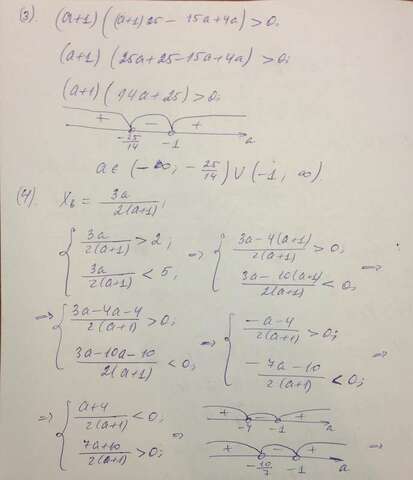 (3). (a+1)((a+1)25 - 15a+4a) > 0;
(a+1)(25a+25-15a+4a) > 0;
(a+1)(14a+25) > 0;
+ - +
-25/14 -1 a
a ∈ (-∞, -25/14) ∪ (-1, ∞).
(4). x_b = 3a/2(a+1);
{ 3a/2(a+1) > 2; 3a/2(a+1) < 5; ⇒ { (3a-4(a+1))/2(a+1) > 0; (3a-10(a+1))/2(a+1) < 0; ⇒
⇒ { (3a-4a-4)/2(a+1) > 0; (3a-10a-10)/2(a+1) < 0; ⇒ { (-a-4)/2(a+1) > 0; (-7a-10)/2(a+1) < 0; ⇒
⇒ { (a+4)/2(a+1) < 0; (7a+10)/2(a+1) > 0; ⇒
+ - +
-4 -1 a
+ - +
-10/7 -1 a ⇒